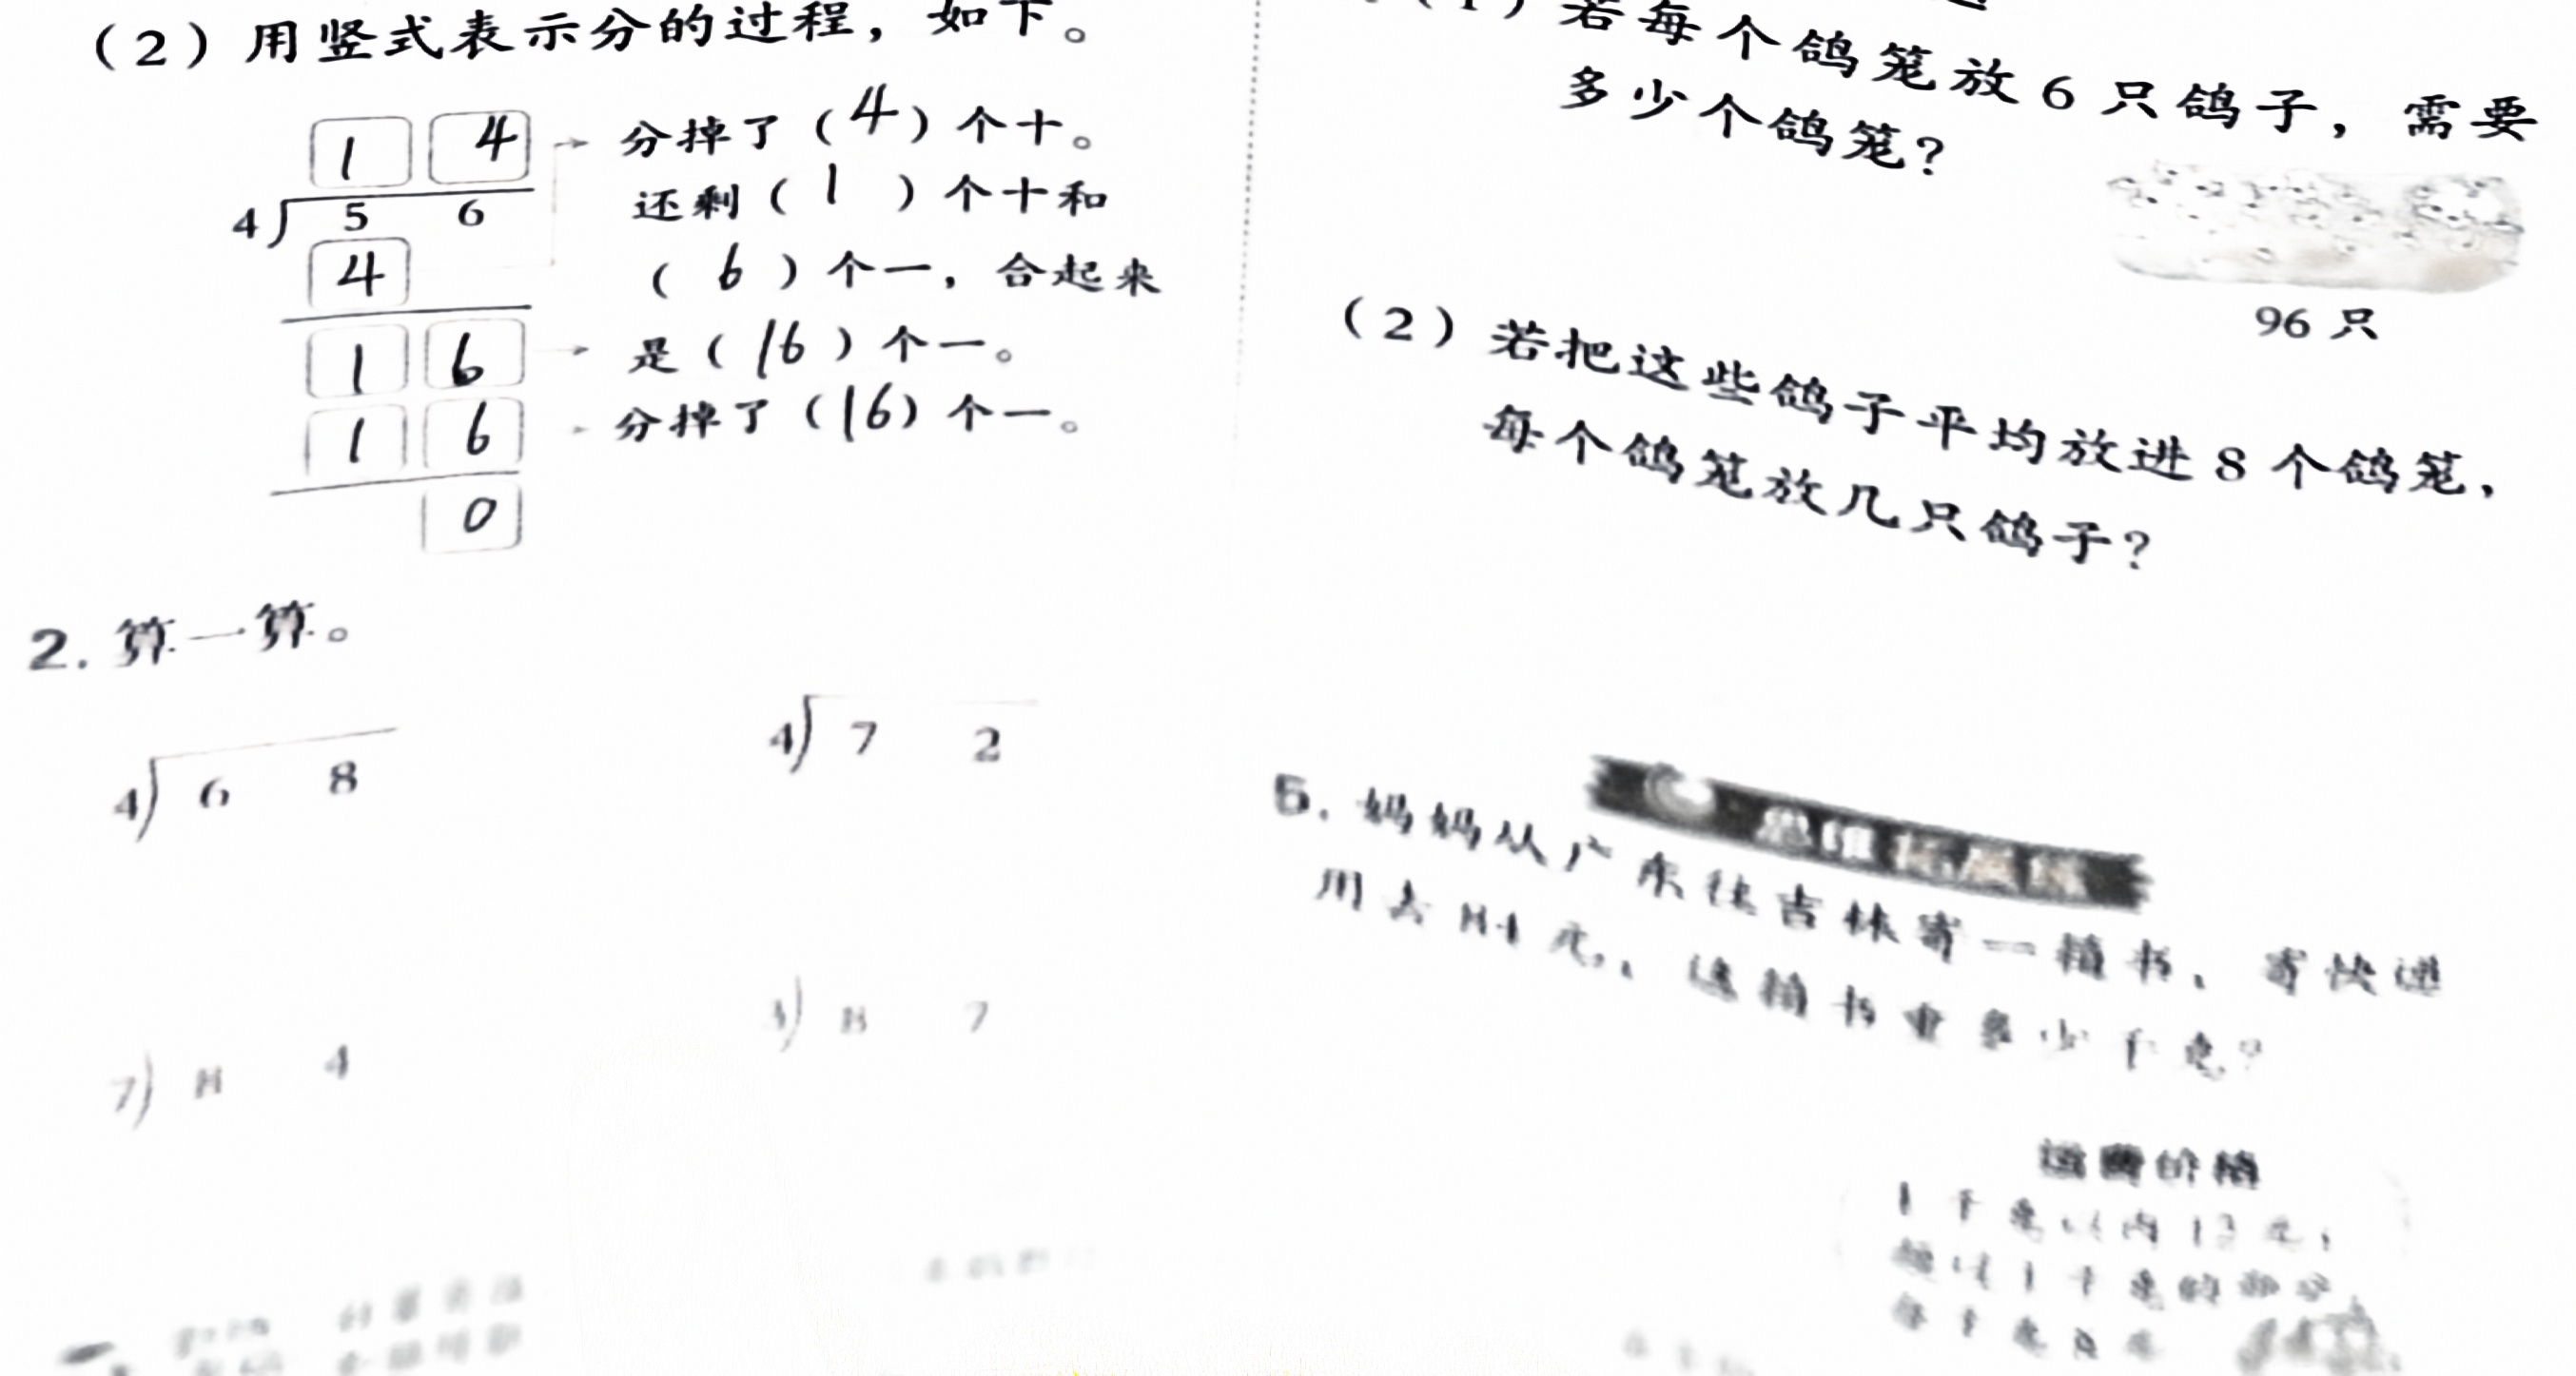 （2）用竖式表示分的过程，如下。
1 4 → 分掉了（4）个十。
4) 5 6 还剩（1）个十和
4 （6）个一，合起来
1 6 → 是（16）个一。
1 6 → 分掉了（16）个一。
0
2. 算一算。
4) 6 8 4) 7 2
7) 8 4 3) 8 7
若每个鸽笼放6只鸽子，需要
多少个鸽笼？
96 只
（2）若把这些鸽子平均放进8个鸽笼，
每个鸽笼放几只鸽子？
5. 妈妈从广东往吉林寄一箱书，寄快递
用去84元，这箱书重多少千克？
运费价格
1千克以内12元，
超过1千克的部分